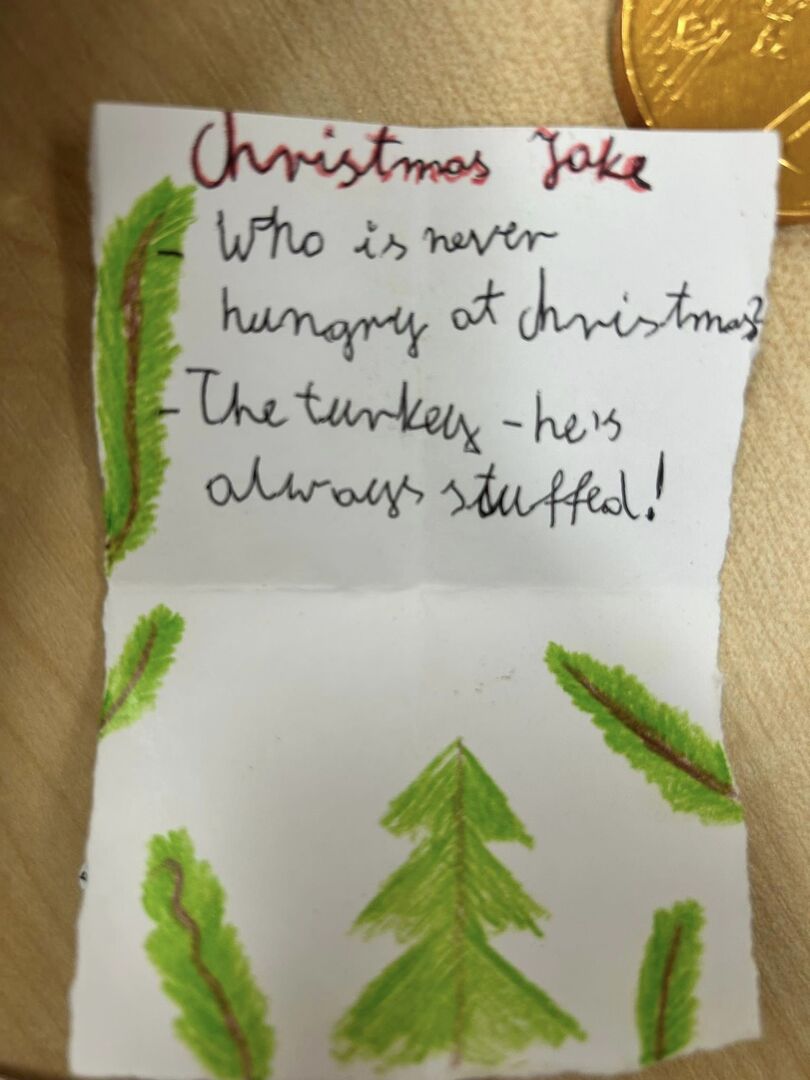 Christmas Joke
- Who is never
hungry at christmas?
- The turkey - he's
always stuffed!